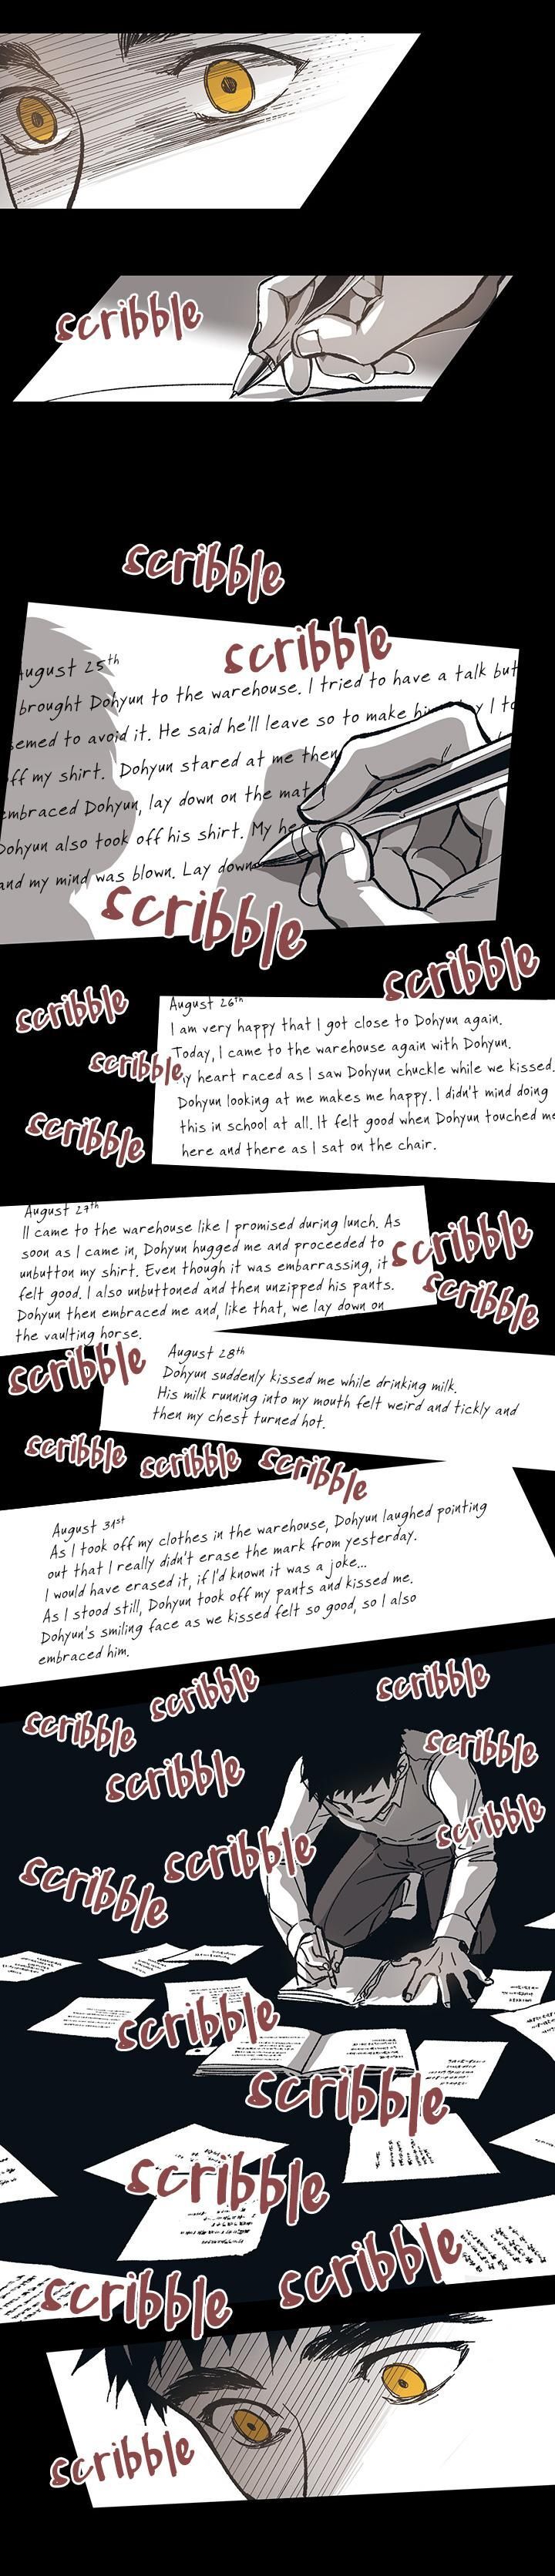 scribble
scribble
scribble
August 25th
brought Dohyun to the warehouse. I tried to have a talk but
emed to avoid it. He said he'll leave so to make hi y I to
ff my shirt. Dohyun stared at me then
embraced Dohyun, lay down on the mat
Dohyun also took off his shirt. My he
and my mind was blown. Lay down
scribble
scribble
scribble
scribble
scribble
August 26th
I am very happy that I got close to Dohyun again.
Today, I came to the warehouse again with Dohyun.
My heart raced as I saw Dohyun chuckle while we kissed.
Dohyun looking at me makes me happy. I didn't mind doing
this in school at all. It felt good when Dohyun touched me
here and there as I sat on the chair.
August 27th
II came to the warehouse like I promised during lunch. As
soon as I came in, Dohyun hugged me and proceeded to
unbutton my shirt. Even though it was embarrassing, it
felt good. I also unbuttoned and then unzipped his pants.
Dohyun then embraced me and, like that, we lay down on
the vaulting horse.
scribble
scribble
scribble
August 28th
Dohyun suddenly kissed me while drinking milk.
His milk running into my mouth felt weird and tickly and
then my chest turned hot.
scribble
scribble
scribble
August 31st
As I took off my clothes in the warehouse, Dohyun laughed pointing
out that I really didn't erase the mark from yesterday.
I would have erased it, if I'd known it was a joke...
As I stood still, Dohyun took off my pants and kissed me.
Dohyun's smiling face as we kissed felt so good, so I also
embraced him.
scribble
scribble
scribble
scribble
scribble
scribble
scribble
scribble
scribble
scribble
scribble
scribble
scribble
scribble